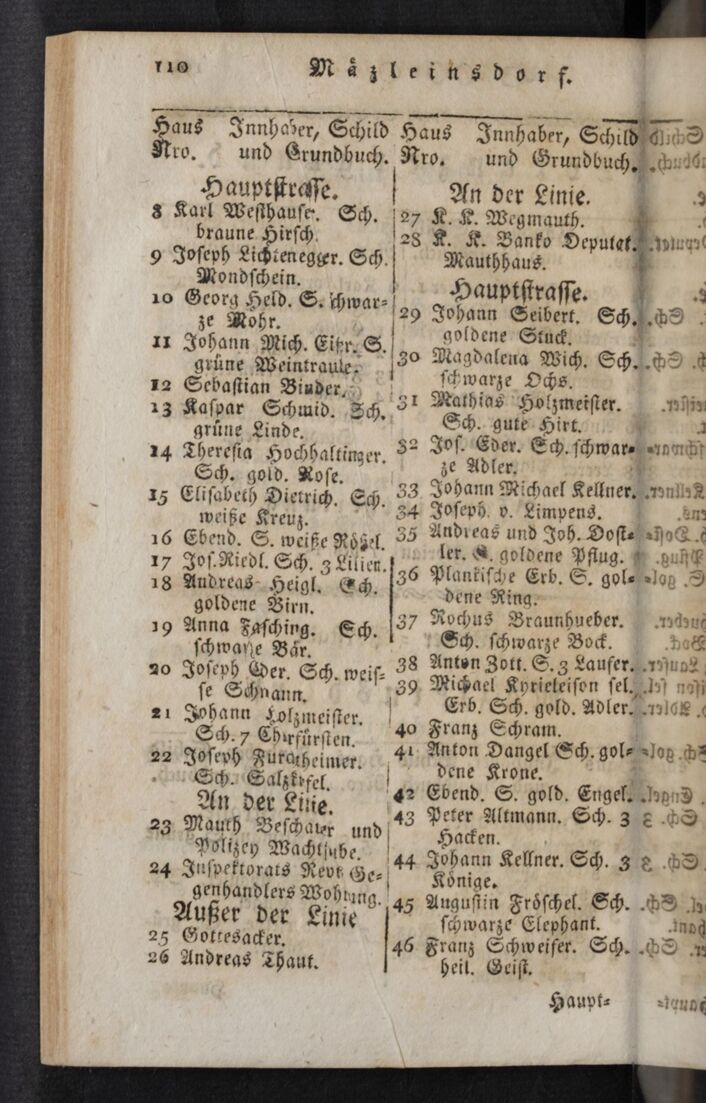 110 Mäzleinsdorf.
Haus Innhaber, Schild
Nro. und Grundbuch.
Hauptstrasse.
8 Karl Westhauser. Sch.
braune Hirsch.
9 Joseph Lichtenegger. Sch.
Mondschein.
10 Georg Held. S. schwar=
ze Mohr.
11 Johann Mich. S.
grüne Weintraube.
12 Sebastian Binder.
13 Kaspar Schmid. Sch.
grüne Linde.
14 Theresia Hochhaltinger.
Sch. gold. Rose.
15 Elisabeth Dietrich. Sch.
weiße Kreuz.
16 Ebend. S. weiße Rössel.
17 Jos. Riedl. Sch. 3 Lilien.
18 Andreas Heigl. Sch.
goldene Birn.
19 Anna Fasching. Sch.
schwarze Bär.
20 Joseph Eder. Sch. weis=
se Schwann.
21 Johann Holzmeister.
Sch. 7 Churfürsten.
22 Joseph Furtheimer.
Sch. Salzküfel.
An der Linie.
23 Mauth Beschauer und
Polizey Wachtstube.
24 Inspektorats Revt Ge=
genhandlers Wohnung.
Außer der Linie
25 Gottesacker.
26 Andreas Thaut.
Haus Innhaber, Schild
Nro. und Grundbuch.
An der Linie.
27 K. K. Wegmauth.
28 K. K. Banko Deputat.
Mauthhaus.
Hauptstrasse.
29 Johann Seibert. Sch.
goldene Stuck.
30 Magdalena Wich. Sch.
schwarze Ochs.
31 Mathias Holzmeister.
Sch. gute Hirt.
32 Jos. Eder. Sch. schwar=
ze Adler.
33 Johann Michael Kellner.
34 Joseph. v. Limpens.
35 Andreas und Joh. Dost=
ler. S. goldene Pflug.
36 Plankische Erb. S. gol=
dene Ring.
37 Rochus Braunhueber.
Sch. schwarze Bock.
38 Anton Zott. S. 3 Laufer.
39 Michael Kyrieleison sel.
Erb. Sch. gold. Adler.
40 Franz Schram.
41 Anton Dangel Sch. gol=
dene Krone.
42 Ebend. S. gold. Engel.
43 Peter Altmann. Sch. 3
Hacken.
44 Johann Kellner. Sch. 3
Könige.
45 Augustin Fröschel. Sch.
schwarze Elephant.
46 Franz Schweifer. Sch.
heil. Geist.
Haupt=